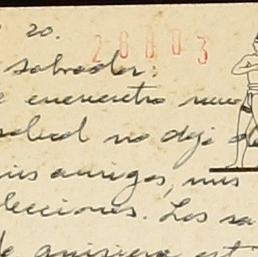 20.
26803
Salvador:
encuentro nue
salud no deja de
mis amigos, mis
lecciones. Les sa
de quisiera est